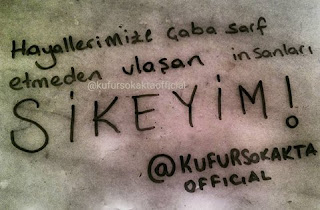 Hayallerimize Çaba sarf
etmeden ulaşan insanları
@kufursokaktaofficial
SİKEYİM!
@KUFURSOKAKTA
OFFICIAL